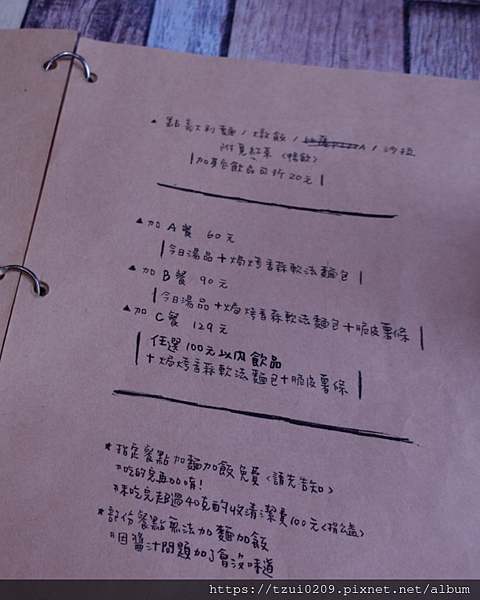 ▲ 點義大利麵/燉飯/沙拉
附夏紅茶〈暢飲〉
加享區飲品可折20元
▲加A餐 60元
今日湯品+焗烤香蒜軟法麵包
▲加B餐 90元
今日湯品+焗烤香蒜軟法麵包+脆皮薯條
▲加C餐 129元
任選100元以內飲品
+焗烤香蒜軟法麵包+脆皮薯條
*指定餐點加麵加飯免費〈請先告知〉
吃的完再加唷!
未吃完超過40克酌收清潔費100元〈捐公益〉
*部份餐點無法加麵加飯
因醬汁問題加了會沒味道
https://tzui0209.pixnet.net/album